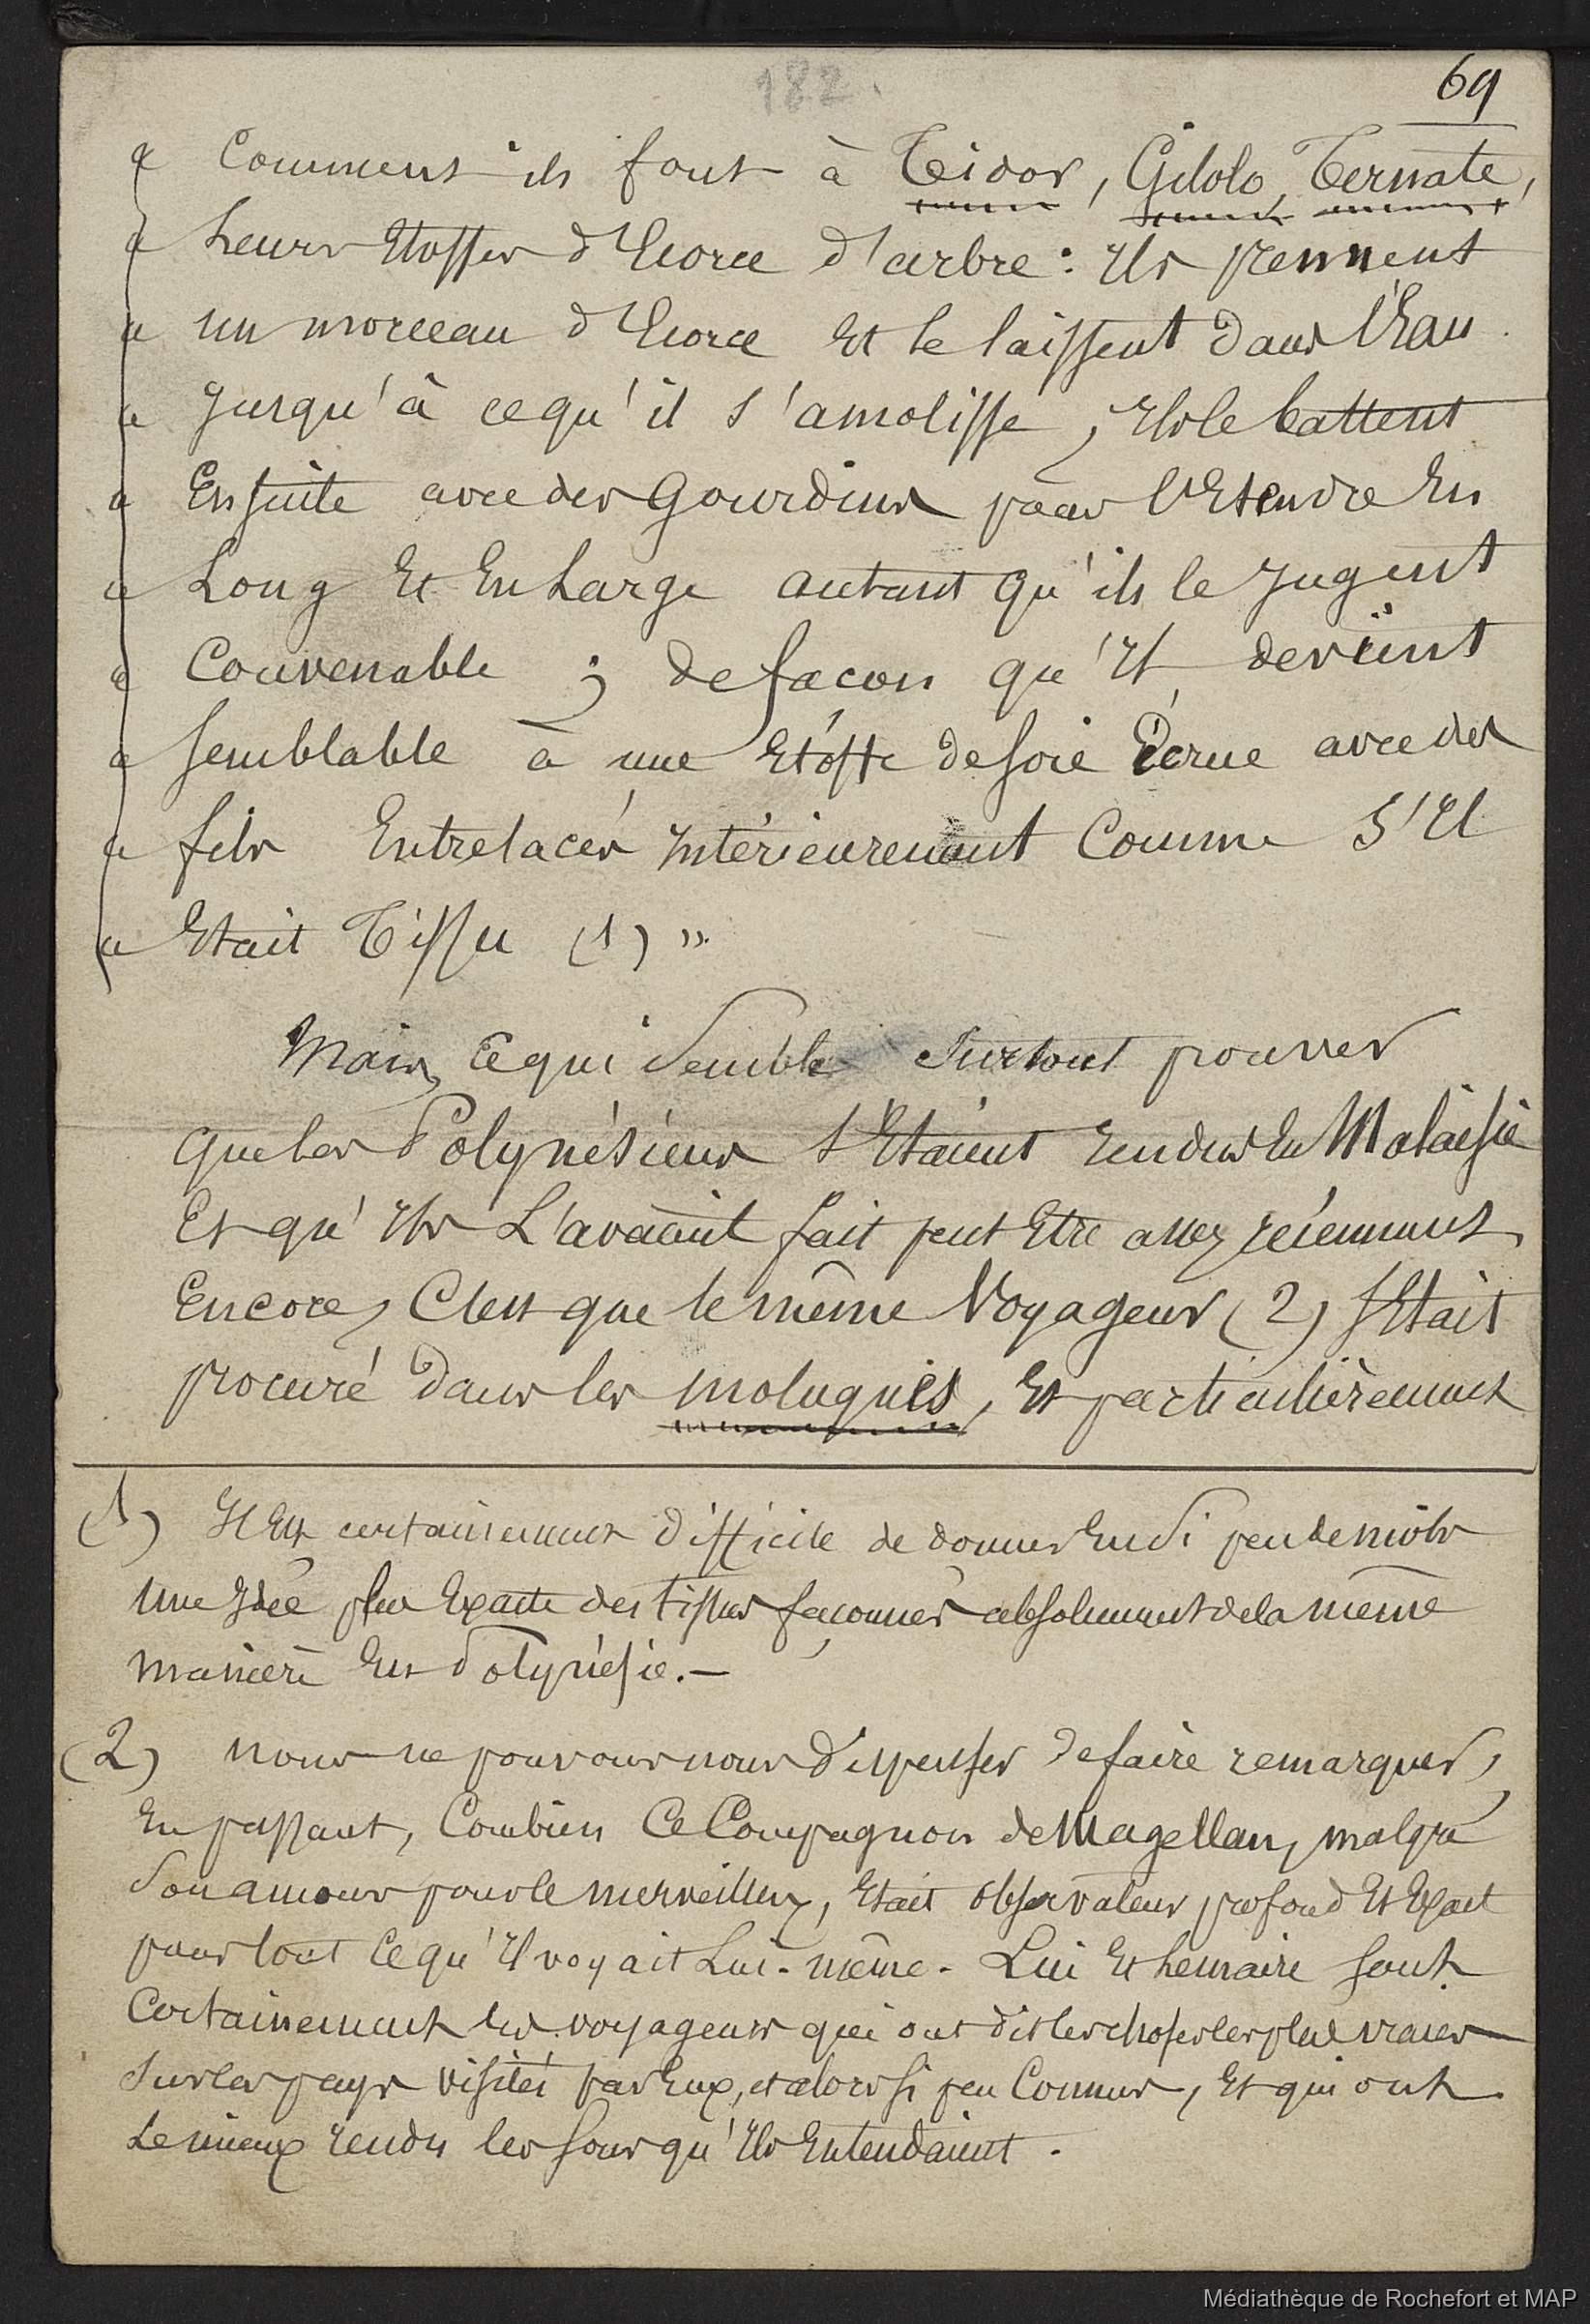 182.
69
« Comment ils font à Tidor, Gilolo, Ternate,
« Leurs Etoffes d'Ecorce d'arbre : Ils prennent
« un morceau d'Ecorce Et le laissent dans l'Eau
« Jusqu'à ce qu'il s'amolisse, Ils le battent
« Ensuite avec des Gourdins pour l'Etendre En
« Long Et En Large autant qu'ils le Jugent
« Convenable ; de facon qu'Il devient
« semblable à une Etoffe de soie Ecrue avec des
« fils Entrelacés Intérieurement Comme S'Il
« Etait Tissu (1) ».
Mais, Ce qui Semble Surtout prouver
que les Polynésiens s'Etaient rendus En Malaisie
Et qu'Ils L'avaient fait peut Etre assez récemment
Encore, C'est que le même Voyageur (2) s'Etait
procuré dans les moluques, Et particulièrement
(1) Il Est certainement difficile de donner En Si peu de mots
une Idée plus Exacte des tissus façonnés absolument de la même
manière En Polynésie. —
(2) nous ne pouvons nous dispenser de faire remarquer,
En passant, Combien Ce Compagnon de Magellan, malgré
Son amour pour le merveilleux, Etait observateur profond Et Exact
pour tout Ce qu'Il voyait Lui-même. Lui Et Lemaire sont
Certainement les voyageurs qui ont dit les choses les plus vraies
Sur les pays visités par Eux, et alors si peu Connus, Et qui ont
Le mieux rendu les sons qu'Ils Entendaient.
Médiathèque de Rochefort et MAP